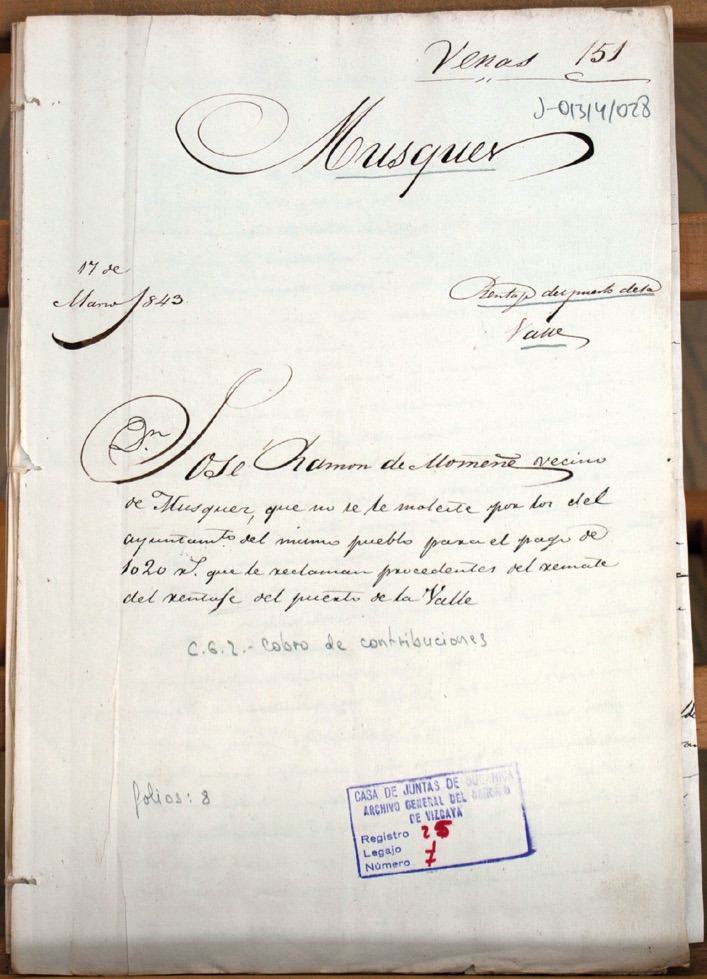 Venas 151
J-01314/028
Musquer
17 de
Marzo 1843
Rentaje del puerto de la
Valle
Dn. José Ramon de Momeñe vecino
de Musquer, que no se le moleste por los del
ayuntamto. del mismo pueblo para el pago de
1020 rs. que le reclaman procedentes del remate
del rentaje del puerto de la Valle
C.6.2.- Cobro de contribuciones
folios: 8
CASA DE JUNTAS DE GUERNICA
ARCHIVO GENERAL DEL SEÑORIO
DE VIZCAYA
Registro 25
Legajo
Número 7